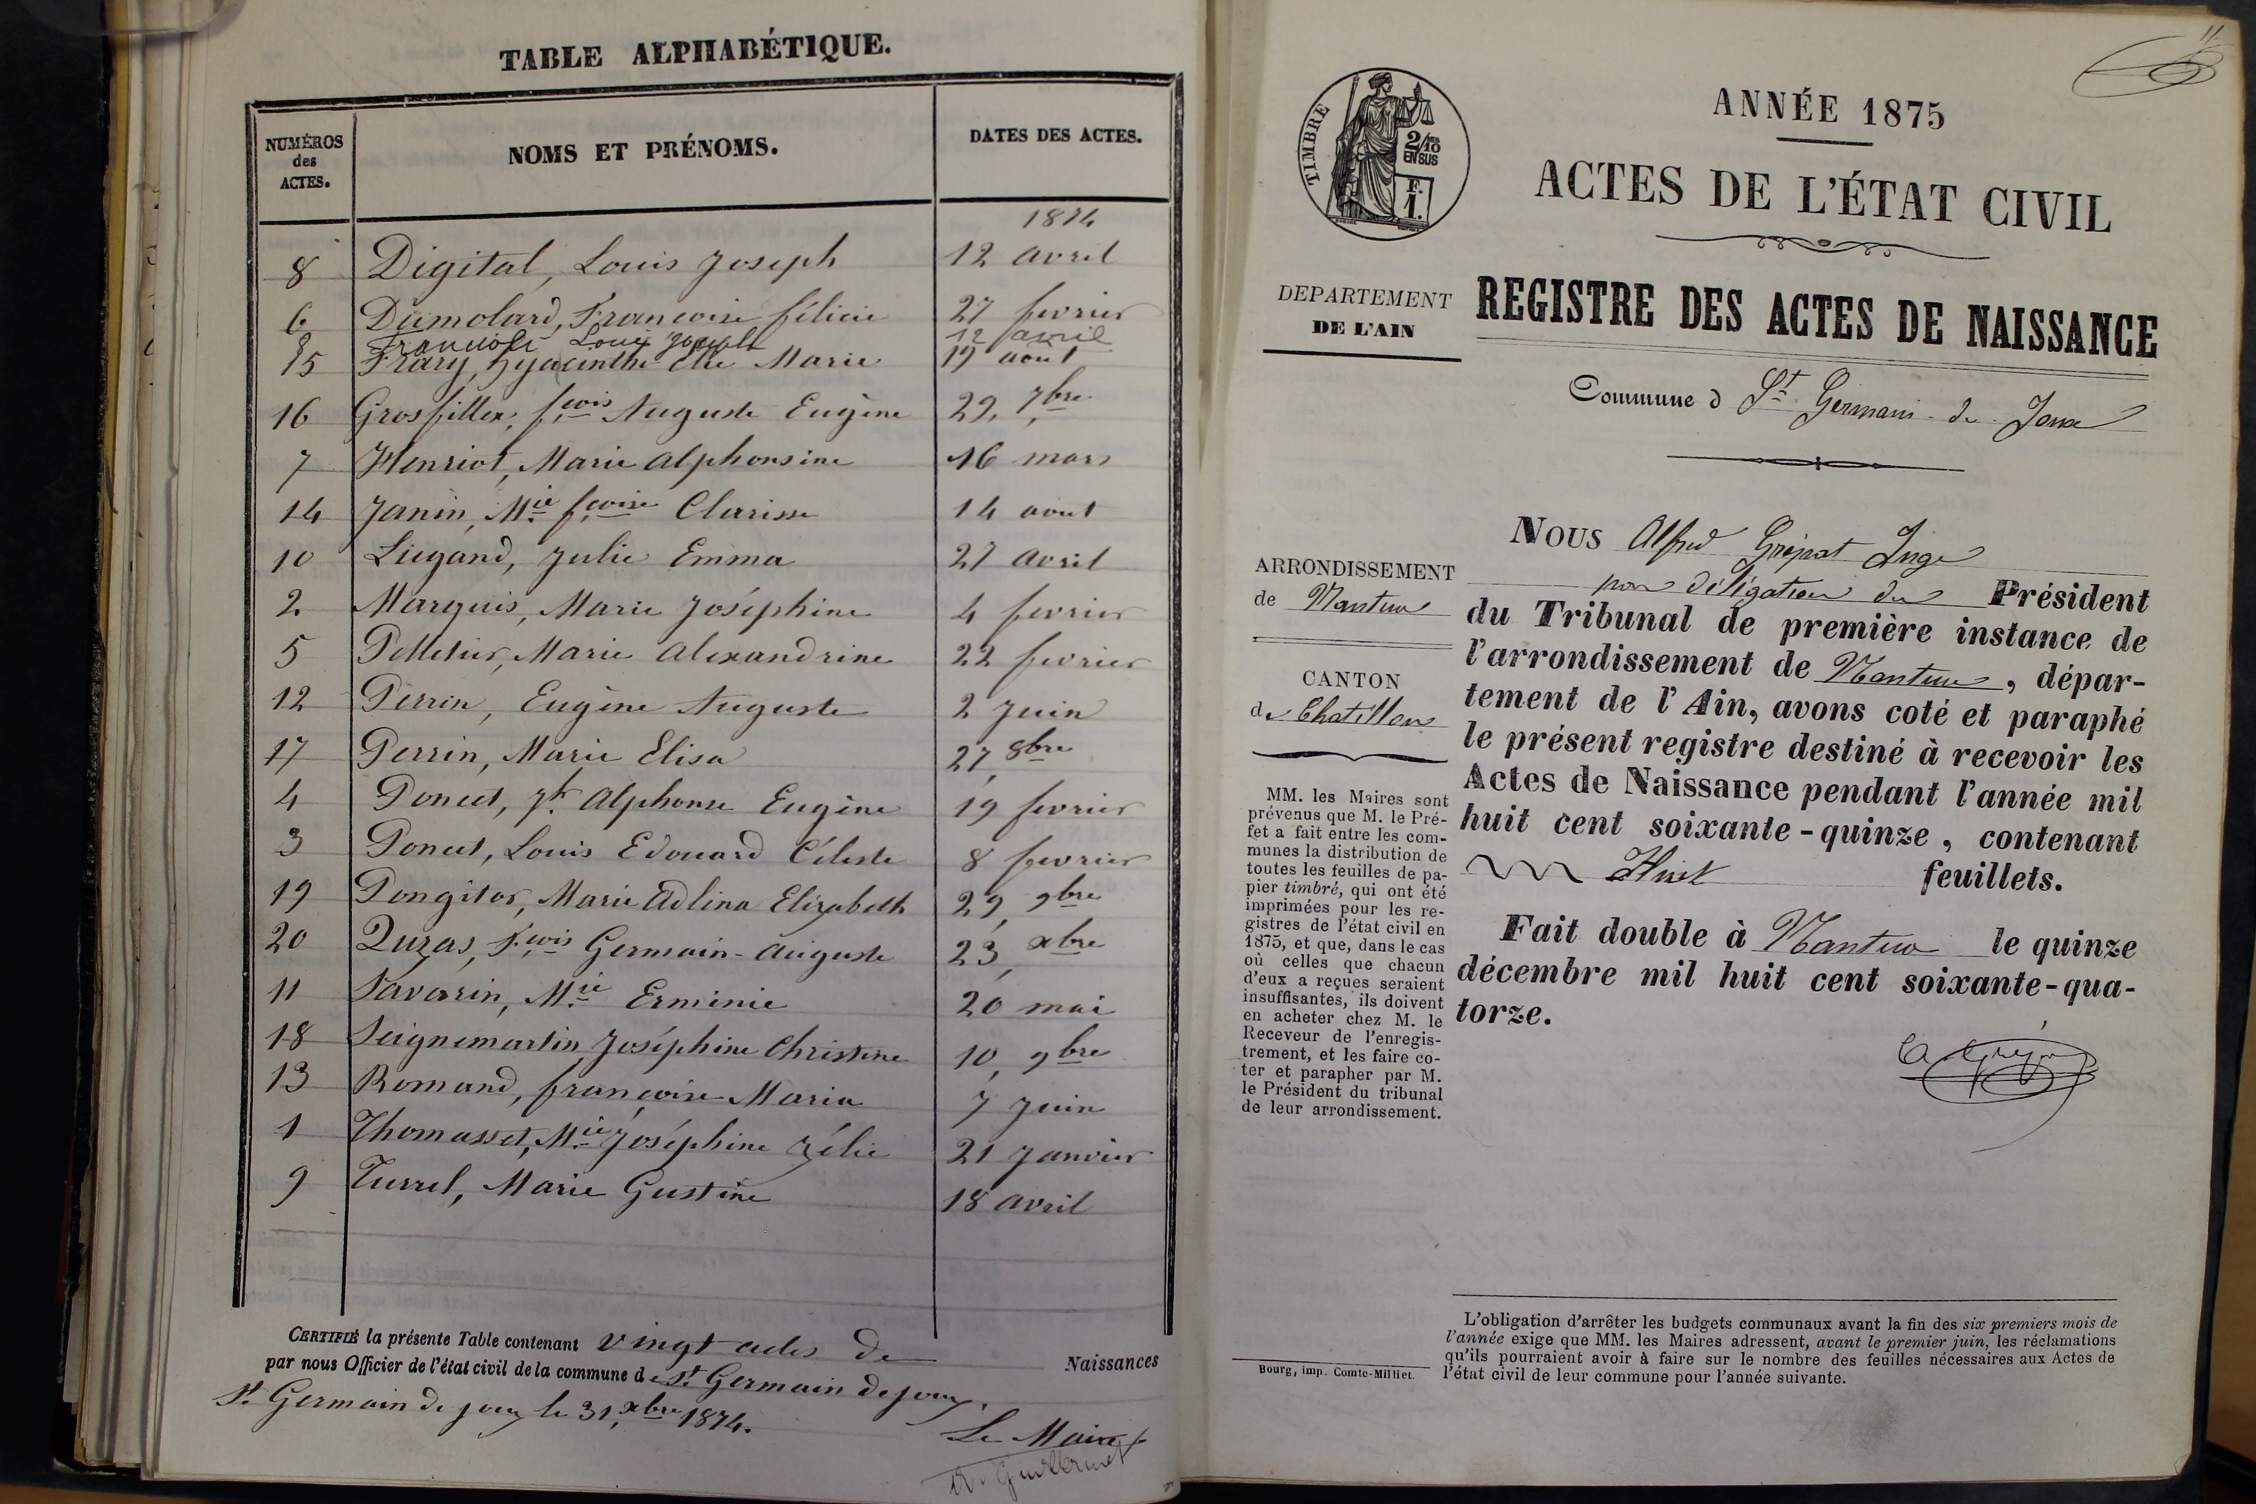 TABLE ALPHABÉTIQUE.
NUMÉROS des ACTES. NOMS ET PRÉNOMS. DATES DES ACTES.
1874
8 Digital, Louis Joseph 12 avril
6 Dumolard, Françoise félicie 27 fevrier
8 François Louis Joseph 12 avril
15 Frary, Hyacinthe Elie Marie 19 aout
16 Grosfillex, f,çois Auguste Eugène 29, 7bre
7 Henriot, Marie alphonsine 16 mars
14 Janin, Mie f,çoise Clarisse 14 aout
10 Liegand, Julie Emma 27 avril
2 Marquis, Marie Joséphine 4 fevrier
5 Pelletier, Marie alexandrine 22 fevrier
12 Perrin, Eugène Auguste 2 Juin
17 Perrin, Marie Elisa 27, 8bre
4 Poncet, Jh alphonse Eugène 19 fevrier
3 Poncet, Louis Edouard Céleste 8 fevrier
19 Pongitor, Marie Adlina Elizabeth 29, 9bre
20 Quzas, F,çois Germain-auguste 23, xbre
11 Savarin, Mie Erminie 20 mai
18 Seignemartin Joséphine Christine 10, 9bre
13 Romand, françoise Maria 7 Juin
1 Thomasset, Mie Joséphine Zélie 21 Janvier
9 Turrel, Marie Gustine 18 avril
CERTIFIÉ la présente Table contenant vingt actes de Naissances
par nous Officier de l'état civil de la commune de St Germain de joux.
St Germain de joux le 31, xbre 1874.
Le Maire
Guillermet
11
TIMBRE
2/10 EN SUS
F. 1.
ANNÉE 1875
ACTES DE L'ÉTAT CIVIL
DEPARTEMENT
DE L'AIN
REGISTRE DES ACTES DE NAISSANCE
Commune d St Germain-de-Joux
ARRONDISSEMENT
de Nantua
CANTON
de Chatillon
MM. les Maires sont
prévenus que M. le Pré-
fet a fait entre les com-
munes la distribution de
toutes les feuilles de pa-
pier timbré, qui ont été
imprimées pour les re-
gistres de l'état civil en
1875, et que, dans le cas
où celles que chacun
d'eux a reçues seraient
insuffisantes, ils doivent
en acheter chez M. le
Receveur de l'enregis-
trement, et les faire co-
ter et parapher par M.
le Président du tribunal
de leur arrondissement.
Nous Alfred Grépat Juge
par délégation du Président
du Tribunal de première instance de
l'arrondissement de Nantua, dépar-
tement de l'Ain, avons coté et paraphé
le présent registre destiné à recevoir les
Actes de Naissance pendant l'année mil
huit cent soixante-quinze, contenant
Huit feuillets.
Fait double à Nantua le quinze
décembre mil huit cent soixante-qua-
torze.
Bourg, imp. Comte-Milliet.
L'obligation d'arrêter les budgets communaux avant la fin des six premiers mois de
l'année exige que MM. les Maires adressent, avant le premier juin, les réclamations
qu'ils pourraient avoir à faire sur le nombre des feuilles nécessaires aux Actes de
l'état civil de leur commune pour l'année suivante.